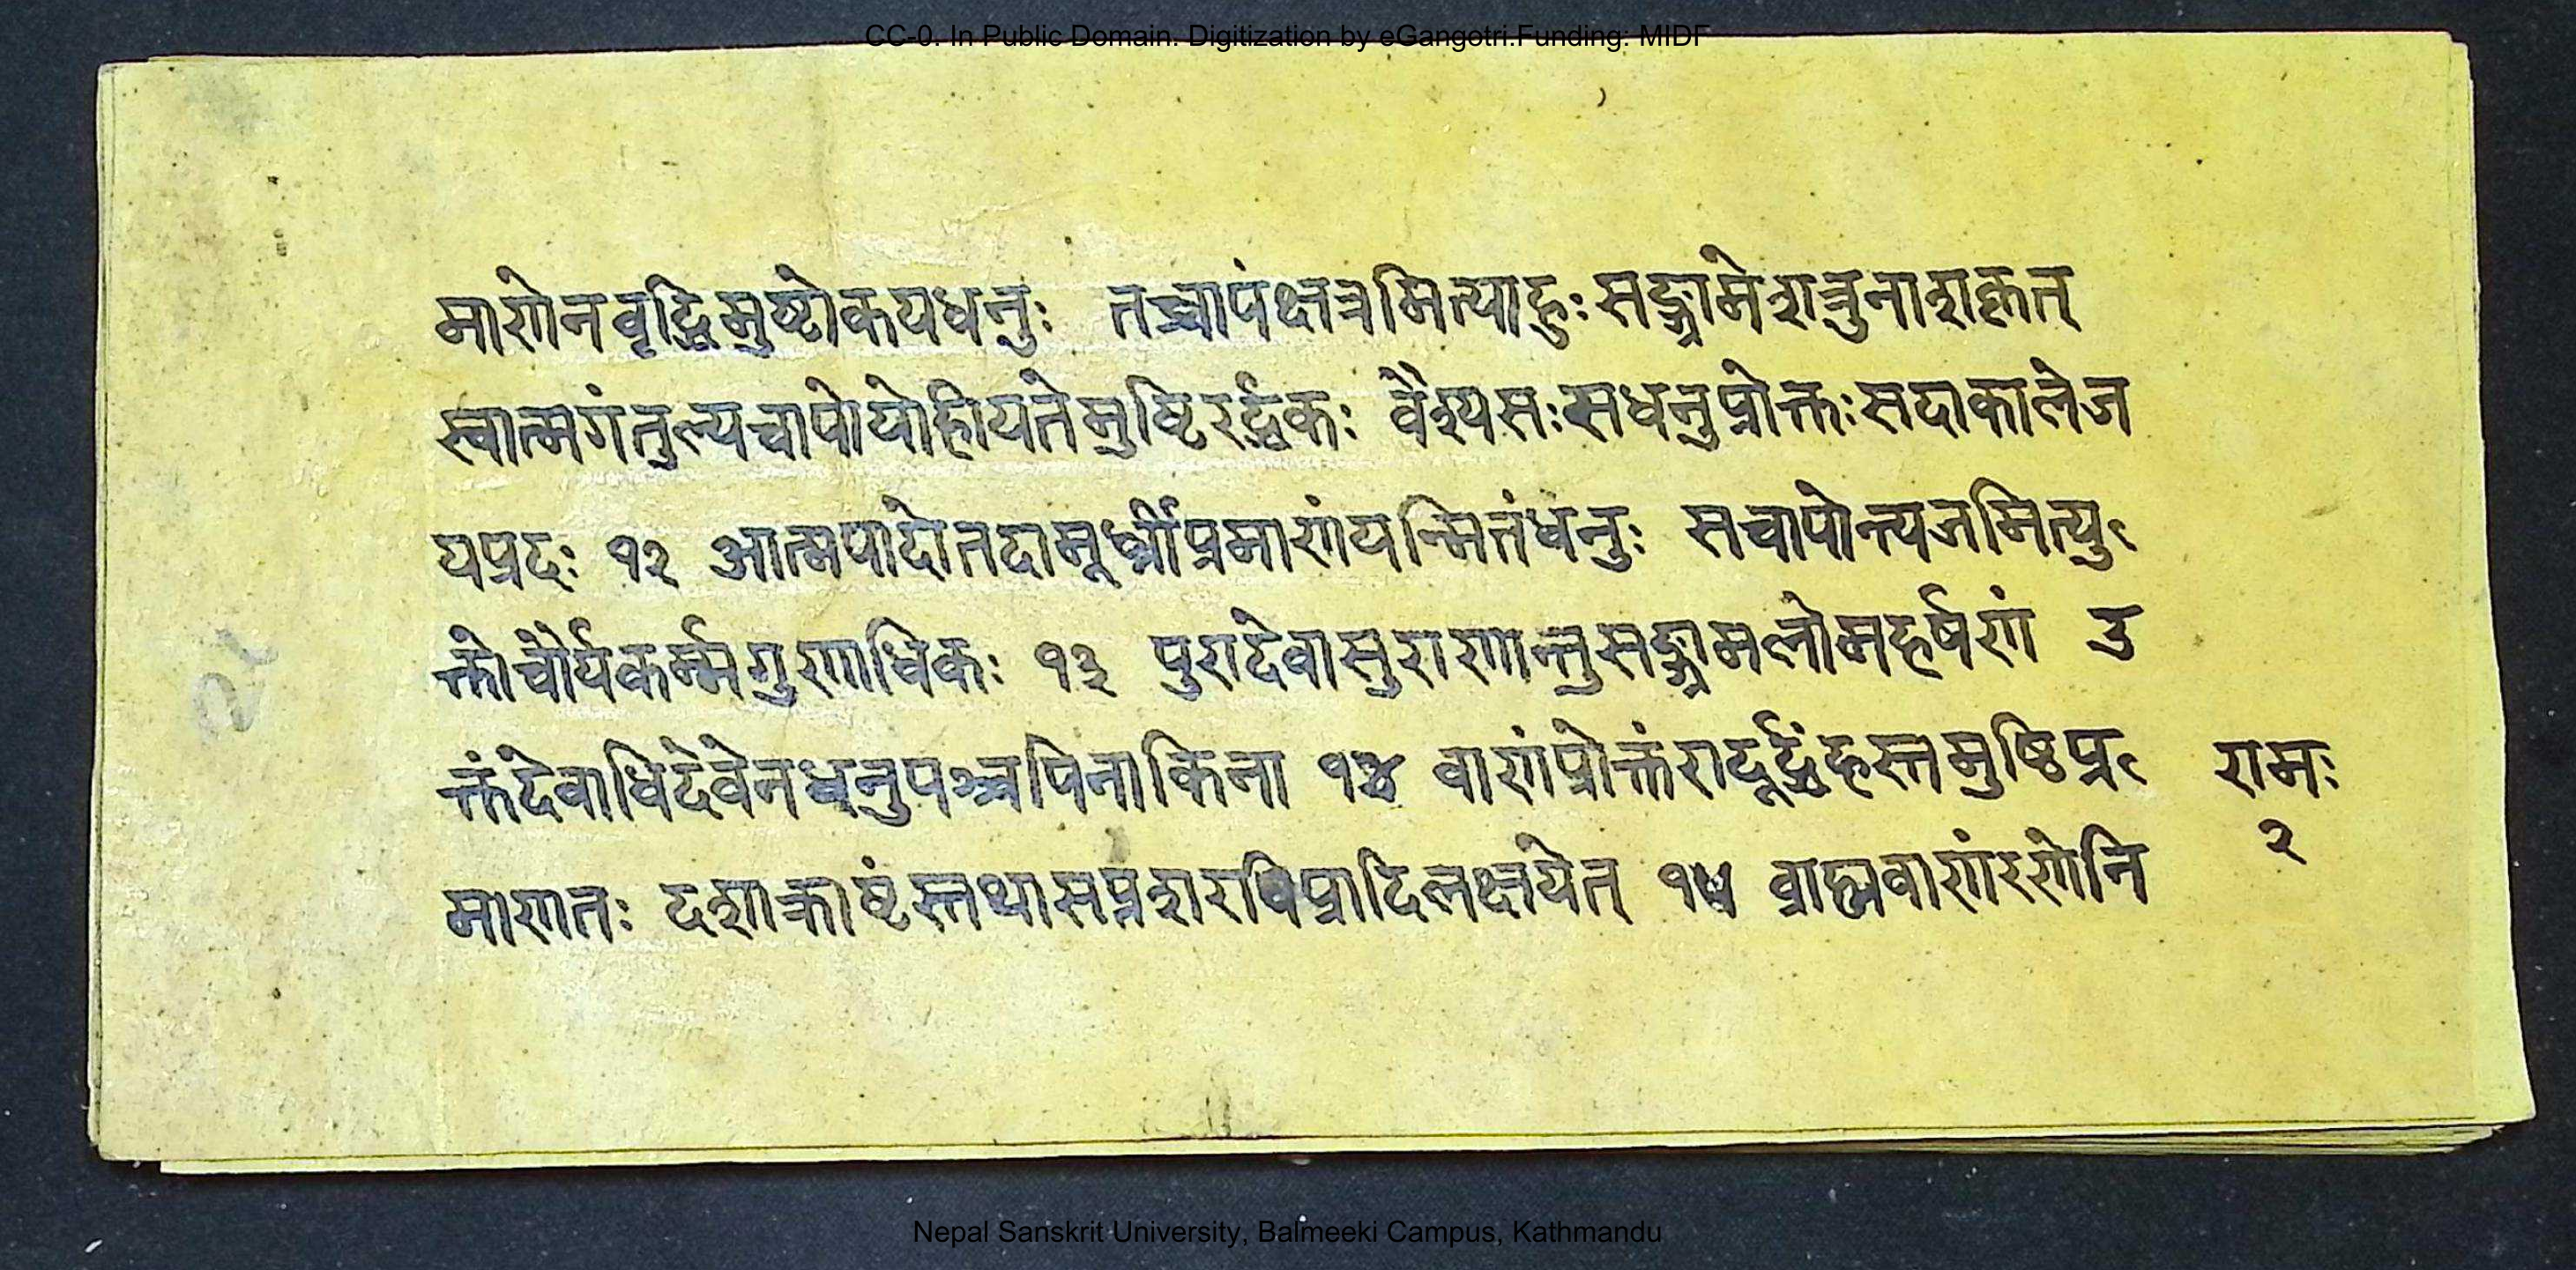 CC-0. In Public Domain. Digitization by eGangotri.Funding: MIDF
माणेनवृद्धिमुष्टोकयधनुः तच्चापंक्षत्रमित्याहुःसङ्ग्रामेशत्रुनाशकृत्
स्वात्मगंतुल्यचापोयोहीयतेमुष्टिरर्द्धकः वैश्यसःसधनुप्रोक्तःसदाकालेज
यप्रदः १२ आत्मपादोतदामूर्ध्नीप्रमाणंयन्मितंधनुः सचापोन्त्यजमित्यु
क्तोचौर्यकर्म्मगुणाधिकः १३ पुरादेवासुराणान्तुसङ्ग्रामलोमहर्षणं उ
क्तंदेवाधिदेवेनधनुपञ्चपिनाकिना १४ वाणंप्रोक्तंरादूर्द्ध्वंहस्तमुष्ठिप्र
रामः
माणतः दशाक्राष्टंस्तथासप्तशरविप्रादिलक्षयेत् १५ व्राह्मवाणंरणेनि
२
Nepal Sanskrit University, Balmeeki Campus, Kathmandu